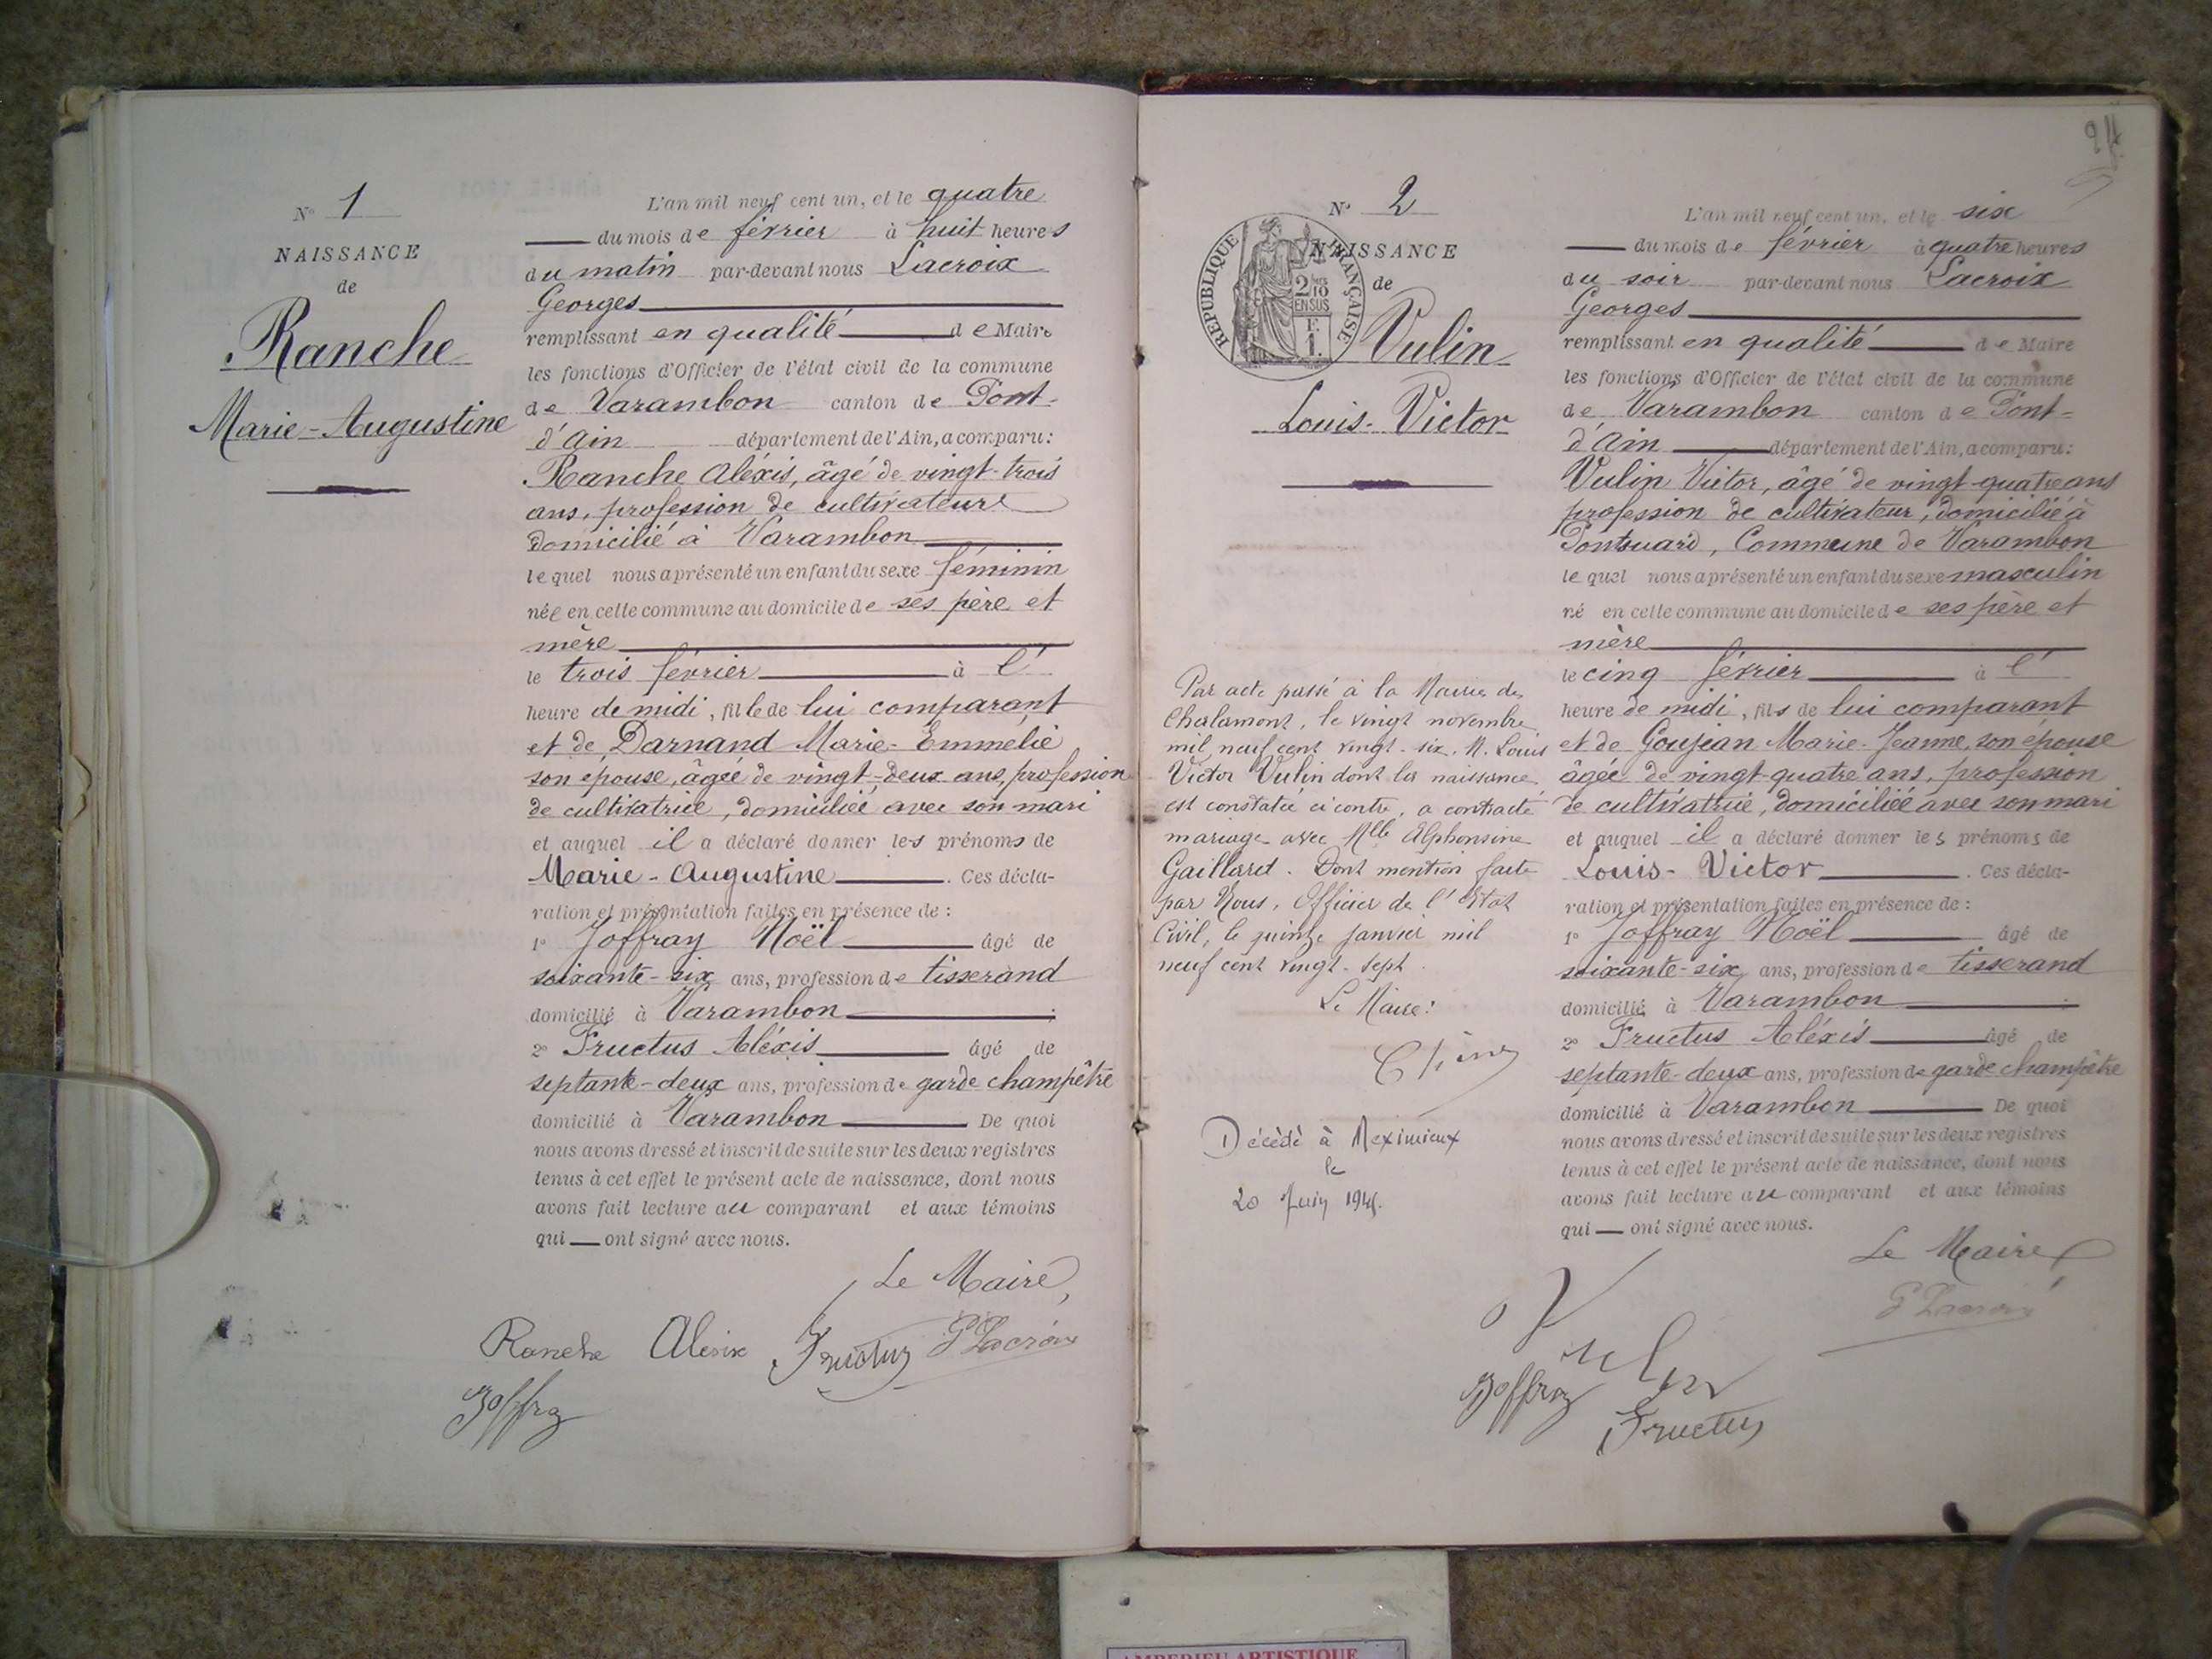 N° 1
NAISSANCE
de
Ranche
Marie-Augustine
L'an mil neuf cent un, et le quatre
du mois de février à huit heures
du matin par-devant nous Lacroix
Georges
remplissant en qualité de Maire
les fonctions d'Officier de l'état civil de la commune
de Varambon canton de Pont-
d'Ain département de l'Ain, a comparu:
Ranche Aléxis, âgé de vingt-trois
ans, profession de cultivateur
domicilié à Varambon
lequel nous a présenté un enfant du sexe féminin
née en cette commune au domicile de ses père et
mère
le trois février à l'
heure de midi, fille de lui comparant
et de Darnand Marie-Emmelie
son épouse, âgée de vingt-deux ans, profession
de cultivatrice, domiciliée avec son mari
et auquel il a déclaré donner les prénoms de
Marie-Augustine. Ces décla-
ration et présentation faites en présence de :
1° Joffray Noël âgé de
soixante-six ans, profession de tisserand
domicilié à Varambon ;
2° Fructus Aléxis âgé de
septante-deux ans, profession de garde champêtre
domicilié à Varambon De quoi
nous avons dressé et inscrit de suite sur les deux registres
tenus à cet effet le présent acte de naissance, dont nous
avons fait lecture au comparant et aux témoins
qui ont signé avec nous.
Le Maire,
Ranche Alexix Fructus G Lacroix
Joffray
24
N° 2
NAISSANCE
de
RÉPUBLIQUE FRANÇAISE
2/10
EN SUS
F.
1.
Vulin
Louis-Victor
Par acte passé à la Mairie de
Chalamont, le vingt novembre
mil neuf cent vingt-six, M. Louis
Victor Vulin dont la naissance
est constatée ci contre, a contracté
mariage avec Mlle Alphonsine
Gaillard. Dont mention faite
par Nous, Officier de l'Etat
Civil, le quinze janvier mil
neuf cent vingt-sept.
Le Maire:
Décédé à Meximieux
le
20 Juin
L'an mil neuf cent un, et le six
du mois de février à quatre heures
du soir par-devant nous Lacroix
Georges
remplissant en qualité de Maire
les fonctions d'Officier de l'état civil de la commune
de Varambon canton de Pont-
d'Ain département de l'Ain, a comparu:
Vulin Victor, âgé de vingt-quatre ans
profession de cultivateur, domicilié à
Pontsuard, Commune de Varambon
lequel nous a présenté un enfant du sexe masculin
né en cette commune au domicile de ses père et
mère
le cinq février à l'
heure de midi, fils de lui comparant
et de Goujean Marie-Jeanne, son épouse
âgée de vingt-quatre ans, profession
de cultivatrice, domiciliée avec son mari
et auquel il a déclaré donner les prénoms de
Louis-Victor. Ces décla-
ration et présentation faites en présence de :
1° Joffray Noël âgé de
soixante-six ans, profession de tisserand
domicilié à Varambon
2° Fructus Aléxis âgé de
septante-deux ans, profession de garde champêtre
domicilié à Varambon De quoi
nous avons dressé et inscrit de suite sur les deux registres
tenus à cet effet le présent acte de naissance, dont nous
avons fait lecture au comparant et aux témoins
qui ont signé avec nous.
Le Maire
G Lacroix
Vulin
Joffray
Fructus
AMBERIEU ARTISTIQUE